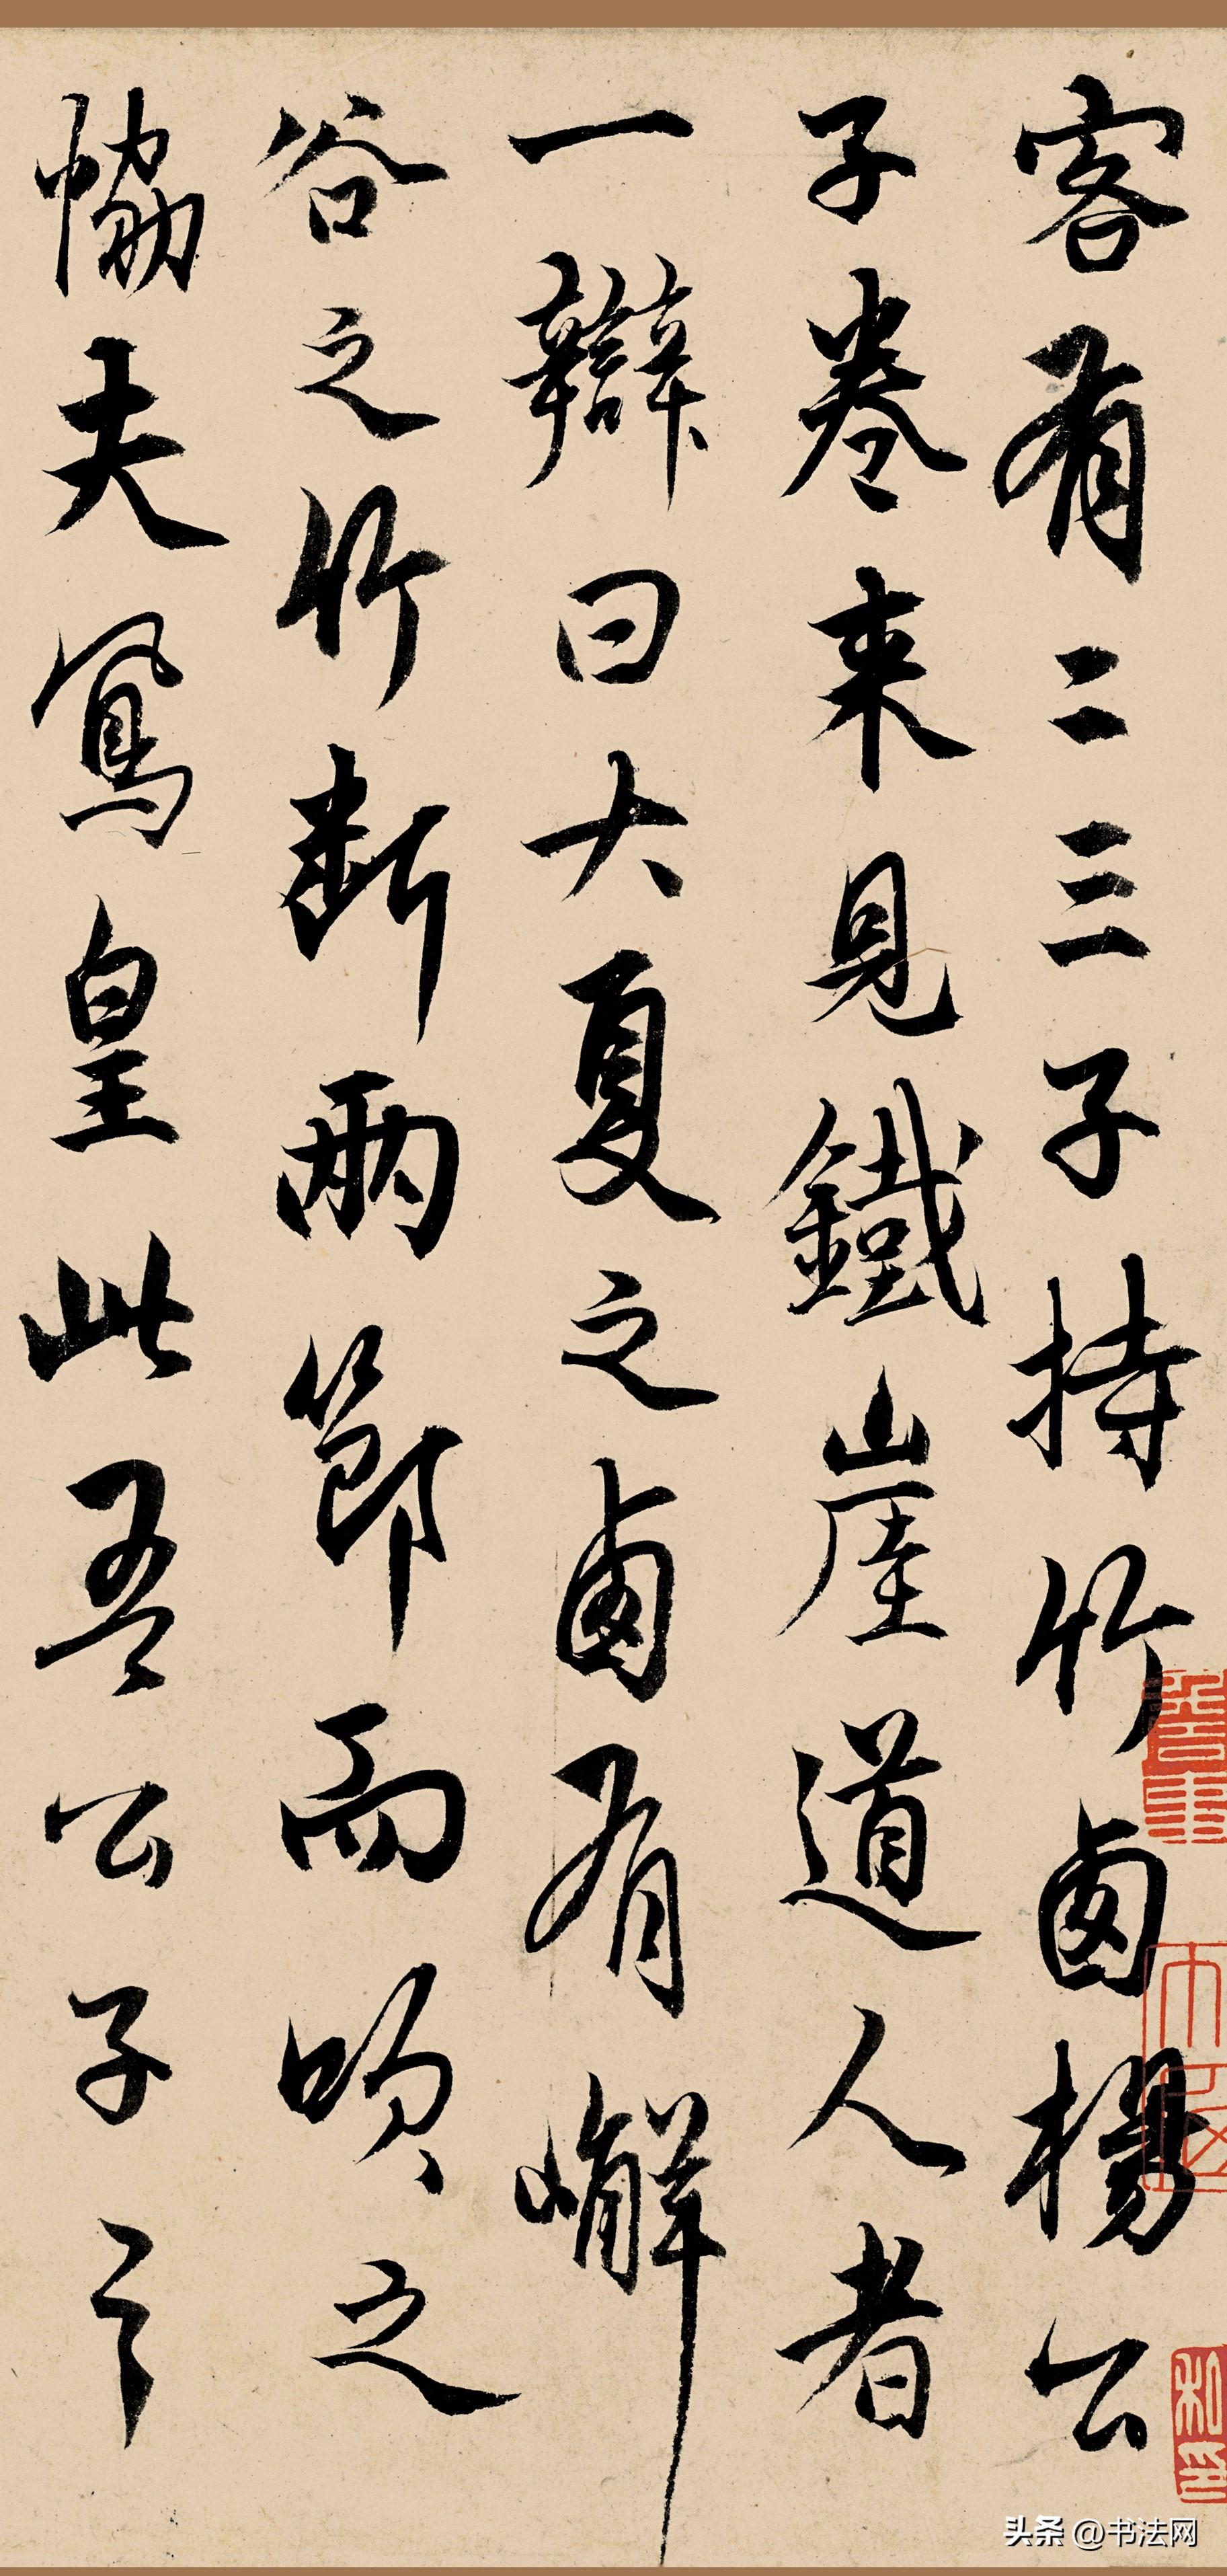 客有二三子持竹卥楊公
子卷来見鐵崖道人者
一辯曰大夏之卥有嶰
谷之竹断兩節而吹之
恊夫鳳皇此吾公子之
头条 @书法网